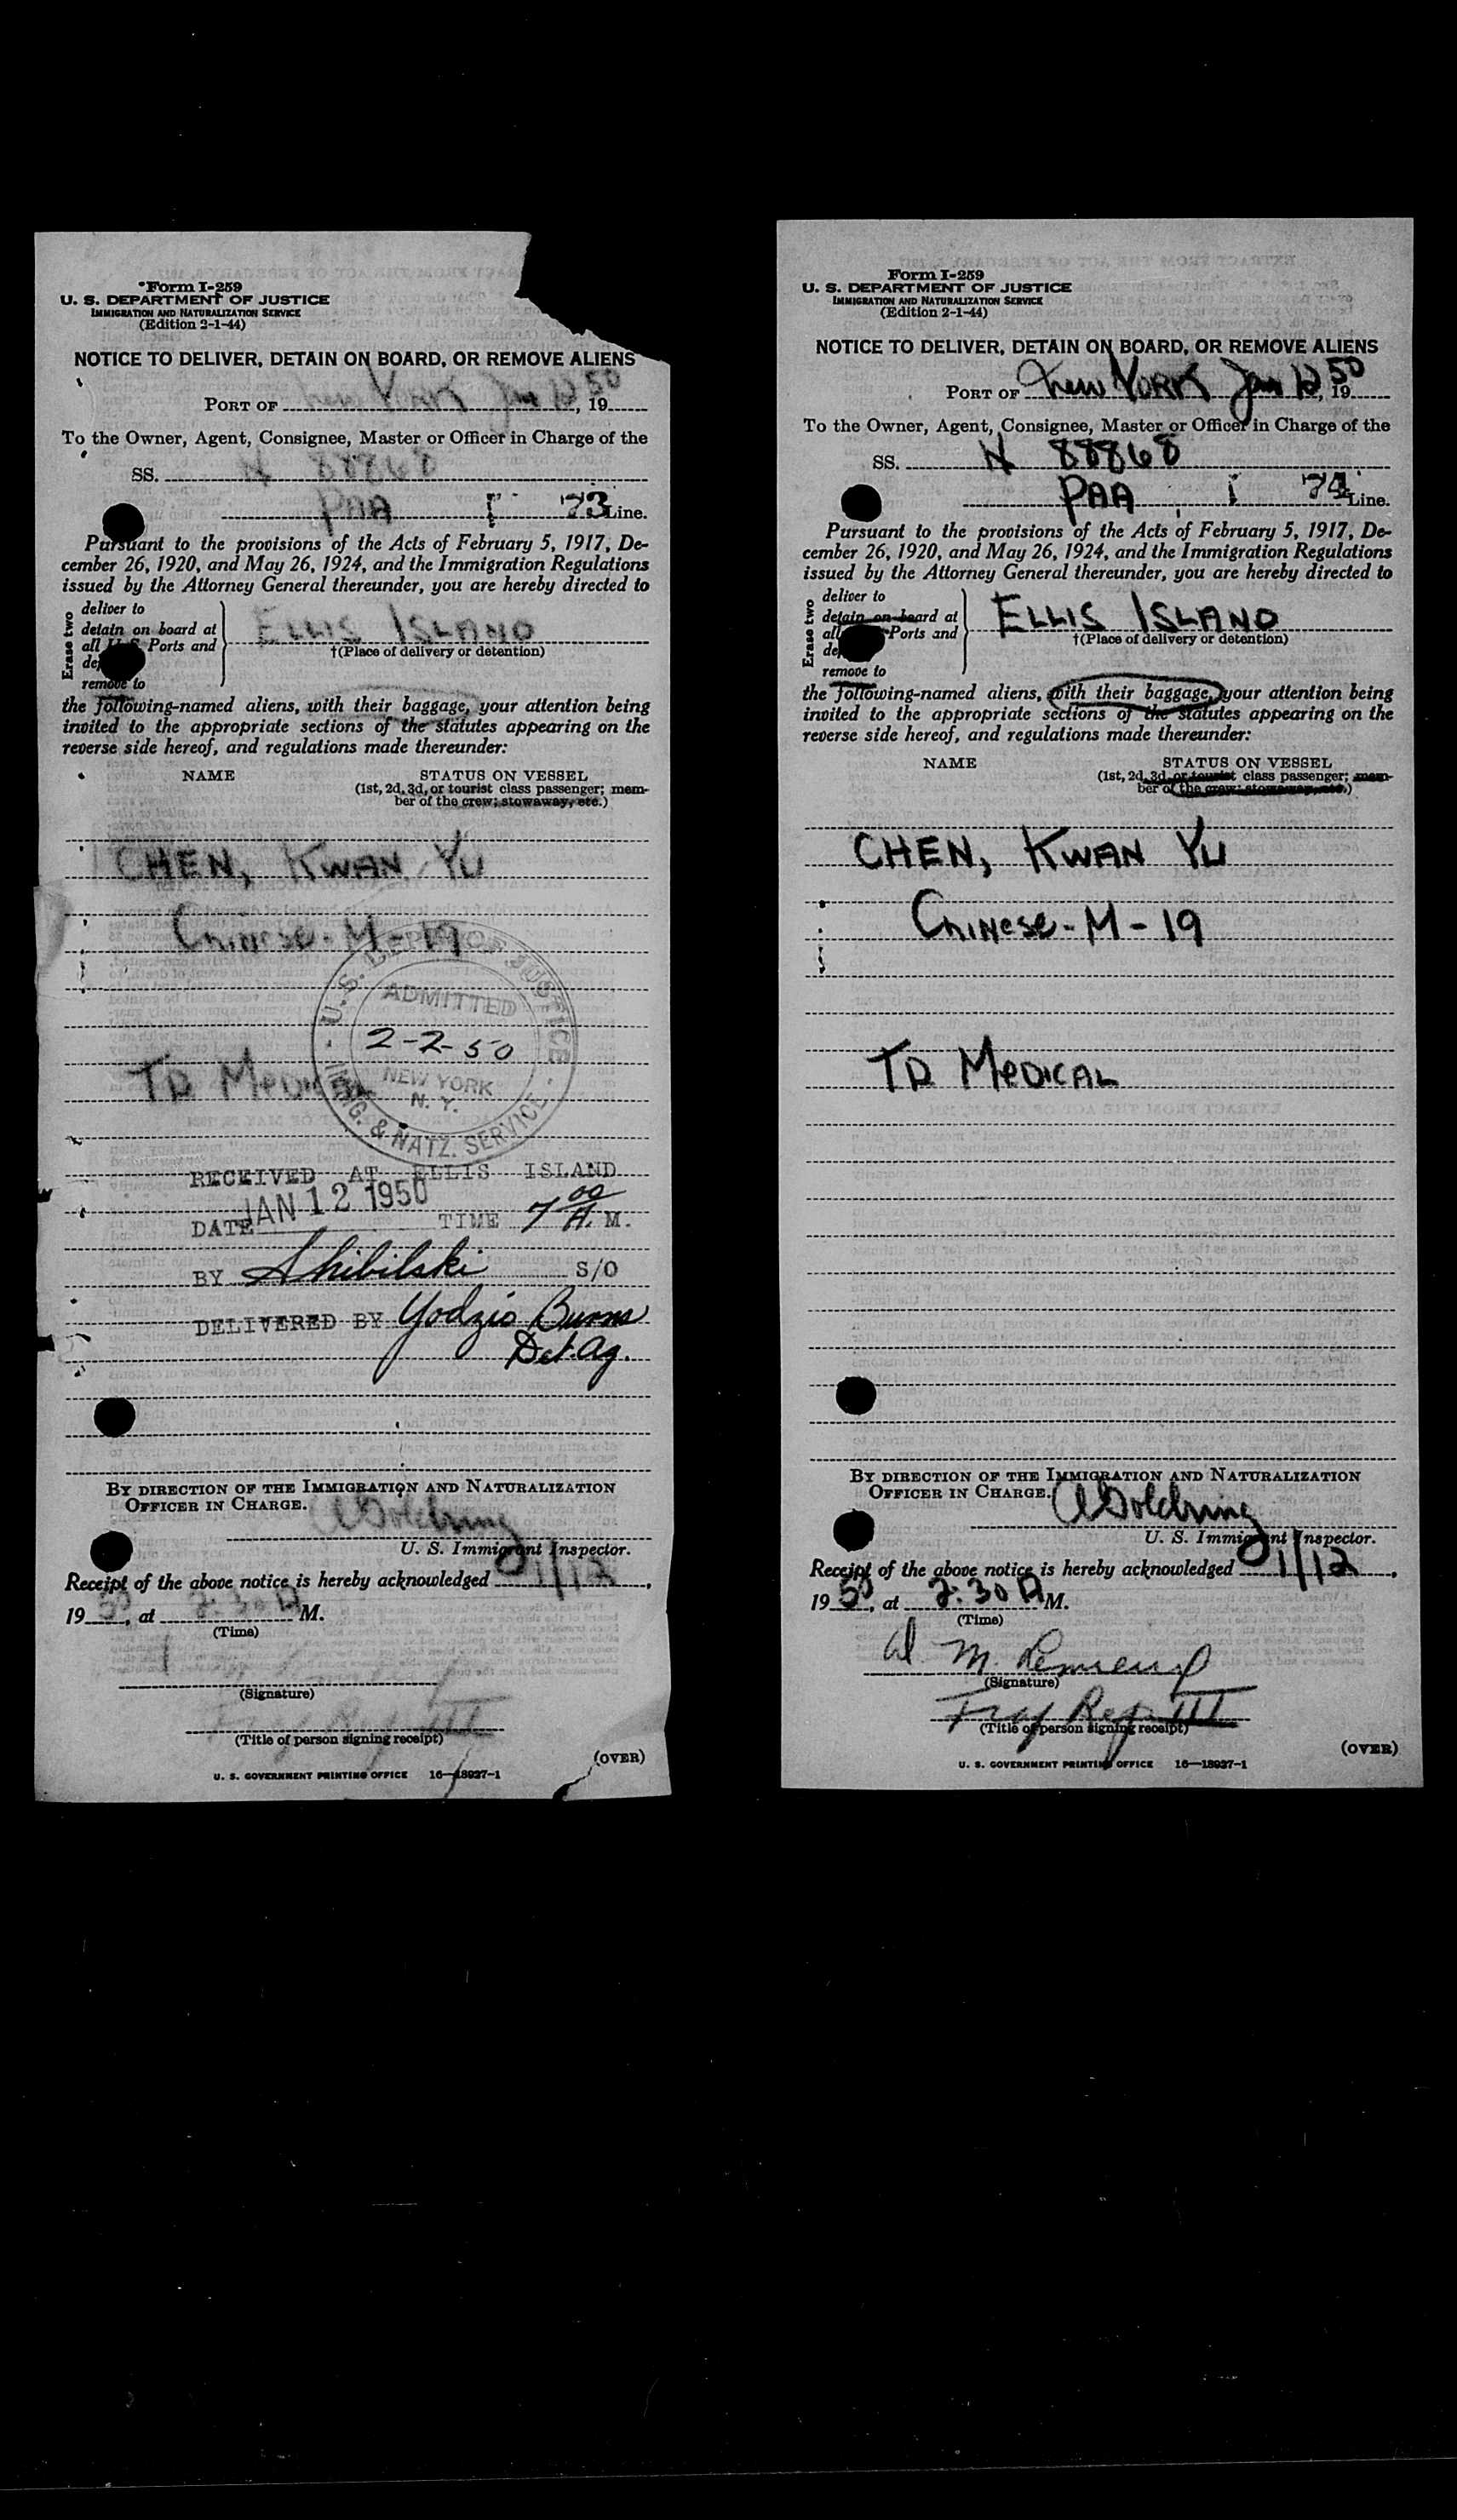 Form I-259
U. S. DEPARTMENT OF JUSTICE
IMMIGRATION AND NATURALIZATION SERVICE
(Edition 2-1-44)
NOTICE TO DELIVER, DETAIN ON BOARD, OR REMOVE ALIENS
PORT OF New York Jan 12, 1950
To the Owner, Agent, Consignee, Master or Officer in Charge of the
SS. N 88868
PAA 1 73 Line.
Pursuant to the provisions of the Acts of February 5, 1917, De-
cember 26, 1920, and May 26, 1924, and the Immigration Regulations
issued by the Attorney General thereunder, you are hereby directed to
Erase two
deliver to
detain on board at
all U.S. Ports and
remove to
ELLIS ISLAND
†(Place of delivery or detention)
the following-named aliens, with their baggage, your attention being
invited to the appropriate sections of the statutes appearing on the
reverse side hereof, and regulations made thereunder:
NAME STATUS ON VESSEL
(1st, 2d, 3d, or tourist class passenger; mem-
ber of the crew; stowaway, etc.)
CHEN, KWAN YU
Chinese - M - 19
U. S. DEPT. OF JUSTICE
ADMITTED
2-2-50
NEW YORK
N. Y.
IMMIG. & NATZ. SERVICE
TD MEDICAL
RECEIVED AT ELLIS ISLAND
DATE JAN 12 1950 TIME 7 00 A. M.
BY Shibilski S/O
DELIVERED BY Burns
Det. Ag.
BY DIRECTION OF THE IMMIGRATION AND NATURALIZATION
OFFICER IN CHARGE.
A Goldring
U. S. Immigrant Inspector.
Receipt of the above notice is hereby acknowledged 1/12,
1950, at 2:30 A M.
(Time)
(Signature)
(Title of person signing receipt)
(OVER)
U. S. GOVERNMENT PRINTING OFFICE 16—18927-1
Form I-259
U. S. DEPARTMENT OF JUSTICE
IMMIGRATION AND NATURALIZATION SERVICE
(Edition 2-1-44)
NOTICE TO DELIVER, DETAIN ON BOARD, OR REMOVE ALIENS
PORT OF New York Jan 12, 1950
To the Owner, Agent, Consignee, Master or Officer in Charge of the
SS. N 88868
PAA 1 Line.
Pursuant to the provisions of the Acts of February 5, 1917, De-
cember 26, 1920, and May 26, 1924, and the Immigration Regulations
issued by the Attorney General thereunder, you are hereby directed to
Erase two
deliver to
detain on board at
all Ports and
remove to
ELLIS ISLAND
†(Place of delivery or detention)
the following-named aliens, with their baggage, your attention being
invited to the appropriate sections of the statutes appearing on the
reverse side hereof, and regulations made thereunder:
NAME STATUS ON VESSEL
(1st, 2d, 3d, or tourist class passenger; mem-
ber of the crew; stowaway, etc.)
CHEN, KWAN YU
Chinese - M - 19
TD MEDICAL
BY DIRECTION OF THE IMMIGRATION AND NATURALIZATION
OFFICER IN CHARGE.
A Goldring
U. S. Immigrant Inspector.
Receipt of the above notice is hereby acknowledged 1/12,
1950, at 2:30 A M.
(Time)
M.
(Signature)
Rep III
(Title of person signing receipt)
(OVER)
U. S. GOVERNMENT PRINTING OFFICE 16—18927-1